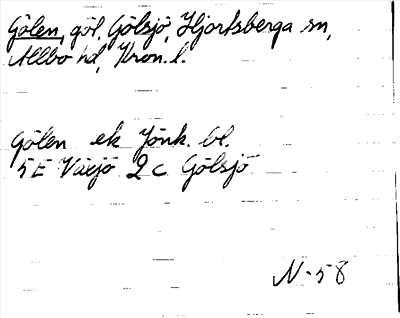 Gölen, göl, Gölsjö, Hjortsberga sn,
Allbo hd, Kron. l.
Gölen ek Jönk. bl.
5E Växjö 2c Gölsjö
N-58